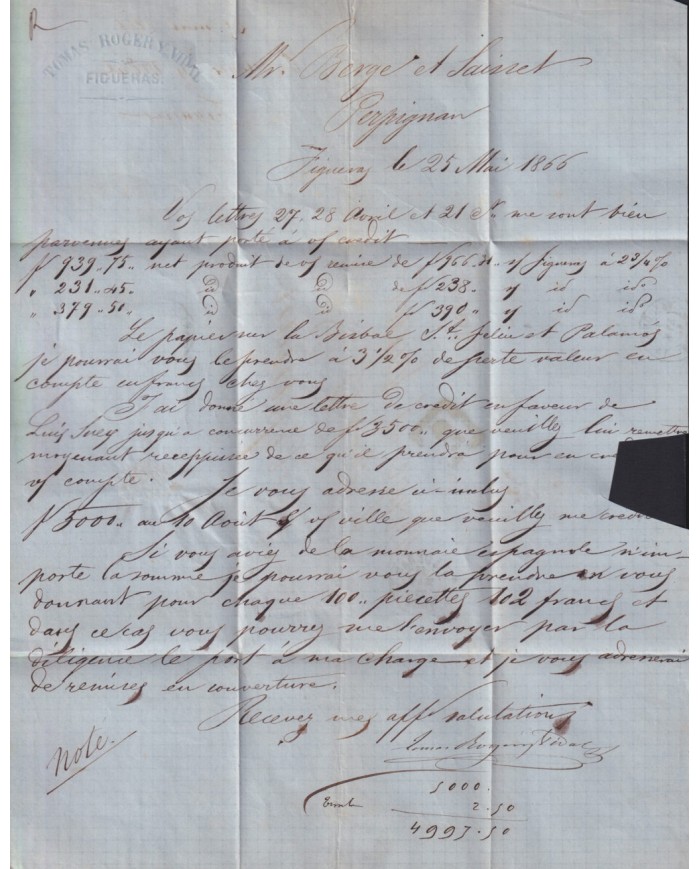 R
TOMAS ROGER Y VIDAL
FIGUERAS.
Mr. Berge et Saisset
Perpignan
Figueras le 25 Mai 1866
Vos lettres 27. 28 Avril et 21 Ct. me sont bien
parvenues ayant porté à v/ crédit
f 939,,75,, net produit de v/ remise de f 966. s/ figueras à 2 3/4 %
" 231,,45. Do Do de f 238. s/ id id
" 379,,50. Do Do f 390,, s/ id id
Le papier sur la Bisbal St. feliu et Palamos
je pourrai vous le prendre à 3 1/2 % de perte valeur en
compte en francs chez vous
J'ai donné une lettre de credit en faveur de
Luis jusqu'a concurrence de f 3500,, que veuillez lui remettre
moyenant recepissée de ce qu'il prendra pour en
v/ compte. Je vous adresse ci-inclus
f 5000,, au 10 Août s/ v/ ville que veuillez me
Si vous aviés de la monnaie espagnole n'im-
porte la somme je pourrai vous la prendre en vous
donnant pour chaque 100,, piecettes 102 francs et
dans ce cas vous pourrez me l'envoyer par la
diligence le port à ma charge et je vous adresserai
de remises en couverture.
Recevez mes aff salutations
Tomas Roger y Vidal
note.
5000.
2.50
4997.50